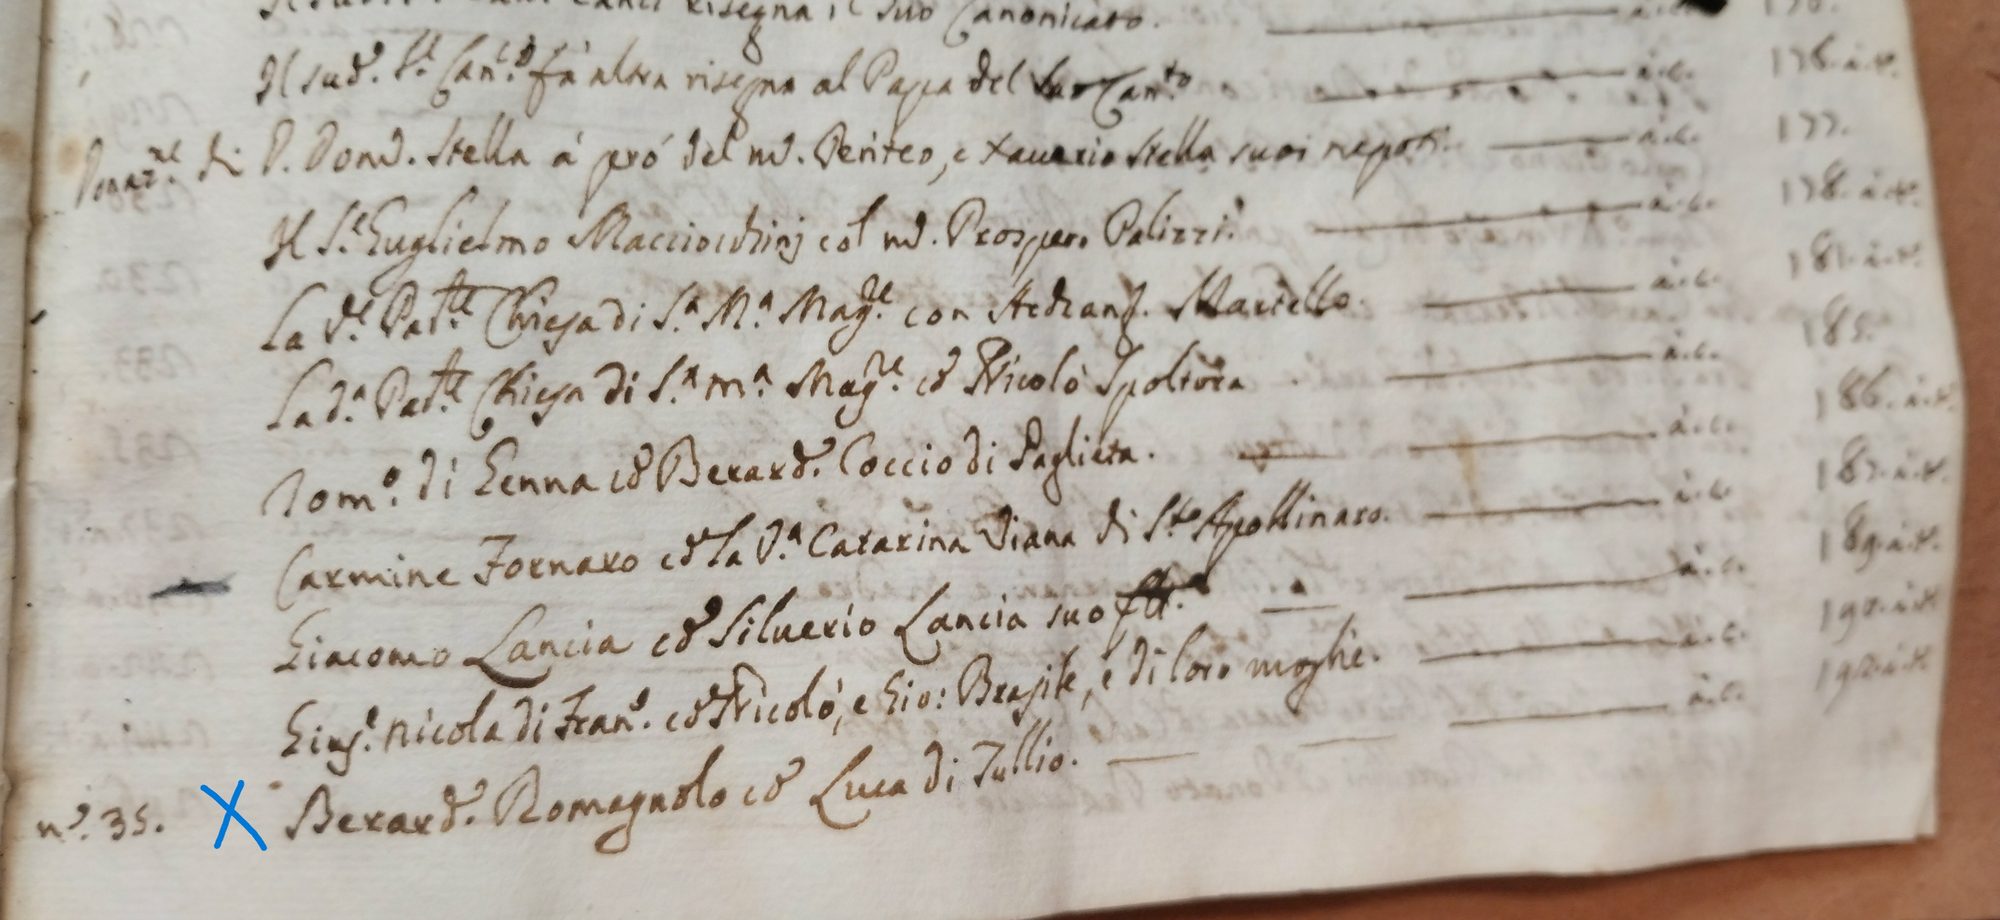 risegna il suo Canonicato. a.c.
Il sud.º S.r Can.co fà altra risegna al Papa del suo Can.to a.c. 176. à.t.
Donaz.ne di D. Dom.º Stella à prò del m.º Penteo, e Xauerio Stella suoi nepoti. a.c. 177.
Il S.r Guglielmo Macciocchinj col m.º Prospero Palizzi. a.c. 178. à.t.
La d.ª Pat.le Chiesa di S.ª M.ª Mag.re con Archang. Mariello. a.c. 181. à.t.
La d.ª Pat.le Chiesa di S.ª m.ª Mag.re cõ Nicolò Spoltora a.c. 185.
Tom.º di Genna cõ Berard.º Coccio di Paglieta. a.c. 186. à.t.
Carmine Fornaro cõ la d.ª Catarina Diana di S.to Apollinaro. a.c. 187. à.t.
Giacomo Lancia cõ Siluerio Lancia suo a.c. 189. à.t.
Gius.e Nicola di Fran.º cõ Nicolò, e Gio: Brasile, e di loro moglie. a.c.
n.º 35. X Berard.º Romagnolo cõ Luca di Tullio. a.c.